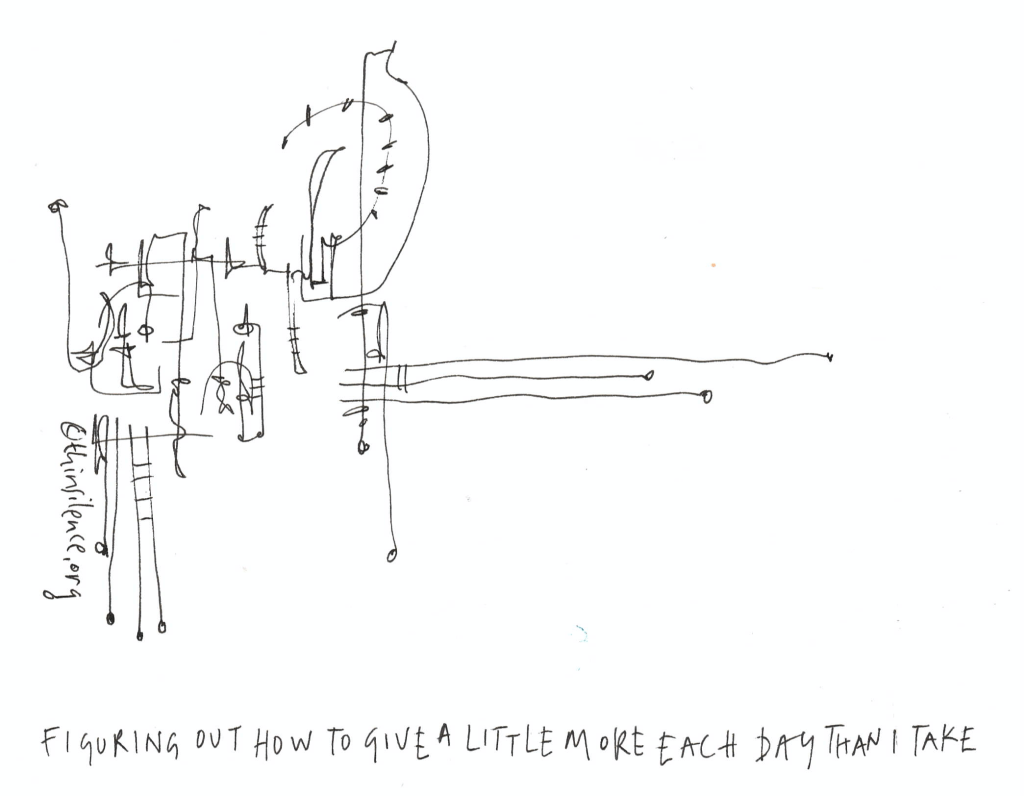 @thinsilence.org
FIGURING OUT HOW TO GIVE A LITTLE MORE EACH DAY THAN I TAKE